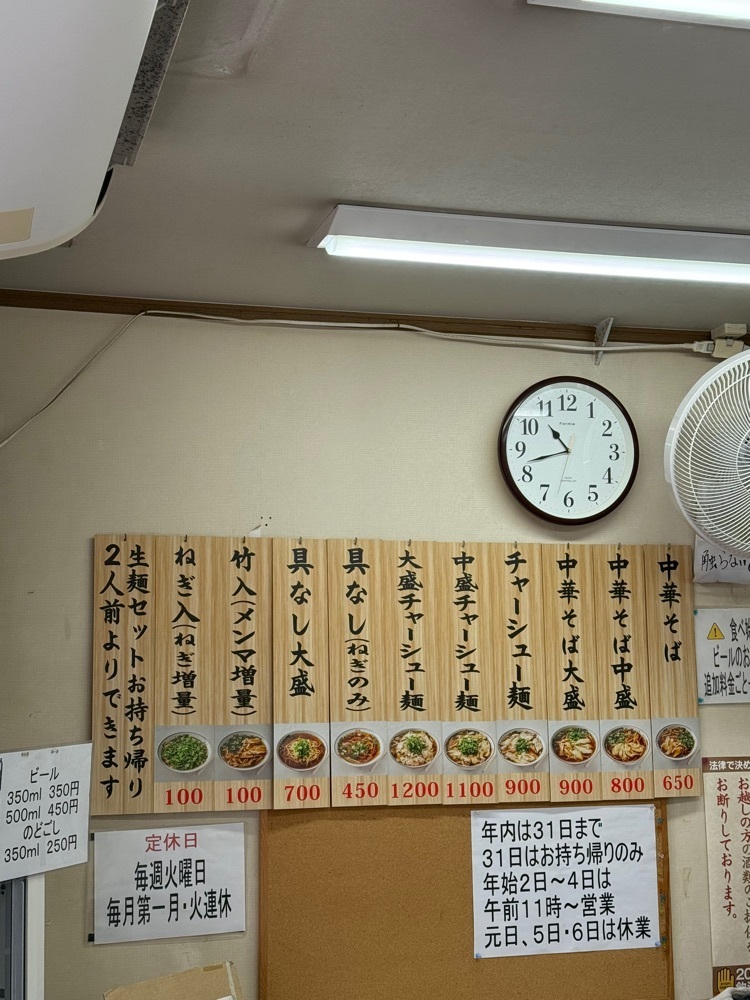 12
1
2
3
4
5
6
7
8
9
10
11
中華そば
650
中華そば中盛
800
中華そば大盛
900
チャーシュー麺
900
中盛チャーシュー麺
1100
大盛チャーシュー麺
1200
具なし(ねぎのみ)
450
具なし大盛
700
竹入(メンマ増量)
100
ねぎ入(ねぎ増量)
100
生麺セットお持ち帰り
2人前よりできます
ビール
350ml 350円
500ml 450円
のどごし
350ml 250円
定休日
毎週火曜日
毎月第一月・火連休
年内は31日まで
31日はお持ち帰りのみ
年始2日～4日は
午前11時～営業
元日、5日・6日は休業
触らない
食べ
ビールのお
追加料金ごと
法律で決め
お越しの方の酒類の
お断りしております。
20